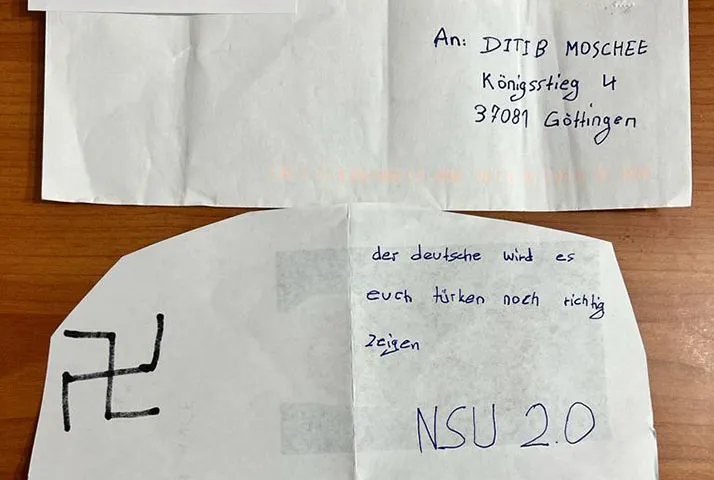 An: DITIB MOSCHEE
Königsstieg 4
37081 Göttingen
der deutsche wird es
euch türken noch richtig
zeigen
NSU 2.0